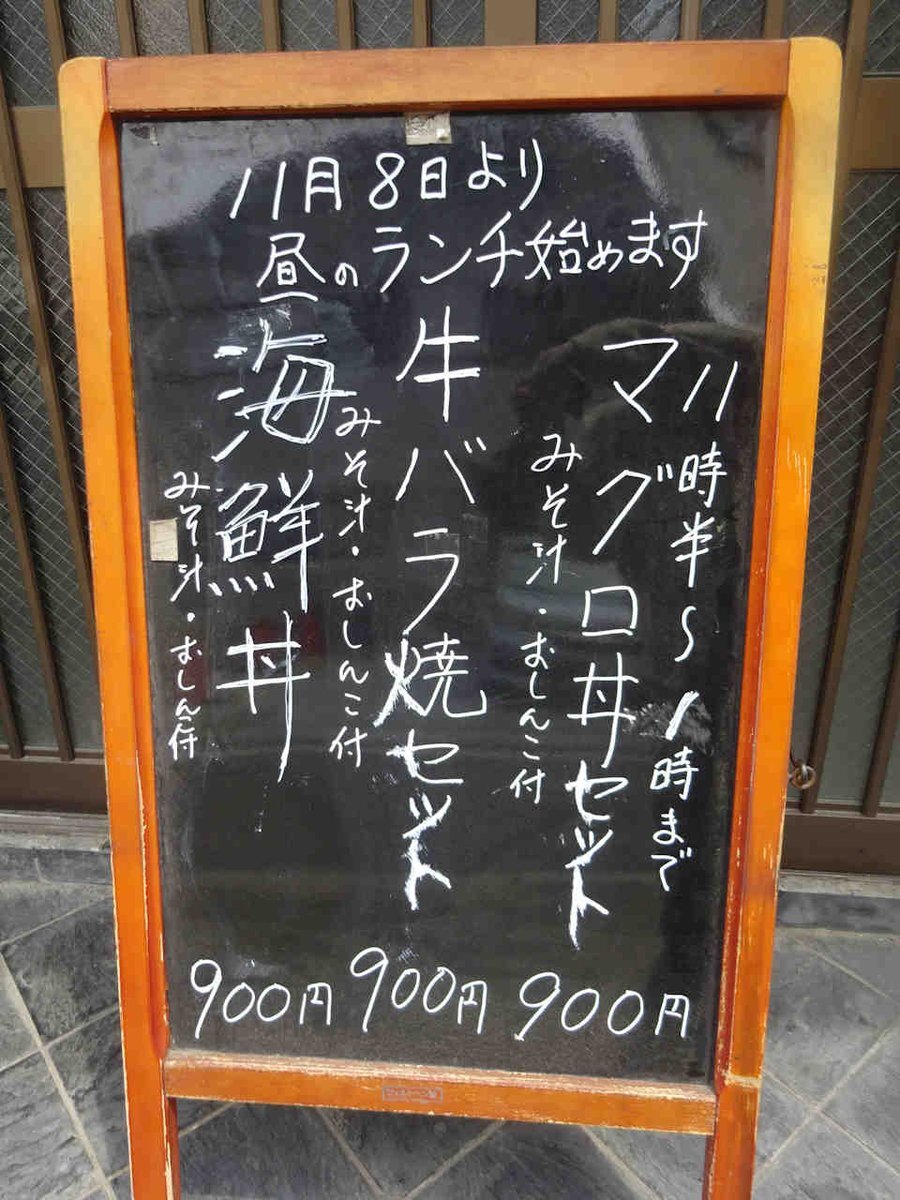 11月8日より
昼のランチ始めます
11時半~1時まで
マグロ丼セット
みそ汁・おしんこ付
900円
牛バラ焼セット
みそ汁・おしんこ付
900円
海鮮丼
みそ汁・おしんこ付
900円